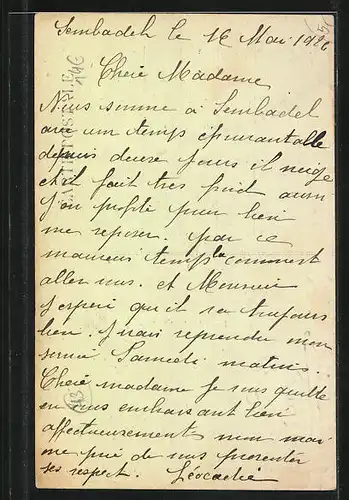 Sembadel le 16 Mai 1926
Cheie Madame
Nous somme a Sembadel
avec un temps épouvantable
depuis deux jours il neige
et il fait tres froid aussi
J'en profite pour bien
me reposer. par ce
mauvais temps la comment
aller vous. et Monsieur
J'esperé qu'il va toujours
bien. J'irais reprendre mon
service Samedi matin.
Cheie madame Je vous quitte
en vous embrassant bien
affectueusements mon mari
me prie de vous presenter
ses respect. Léocadie
CARTE POSTALE